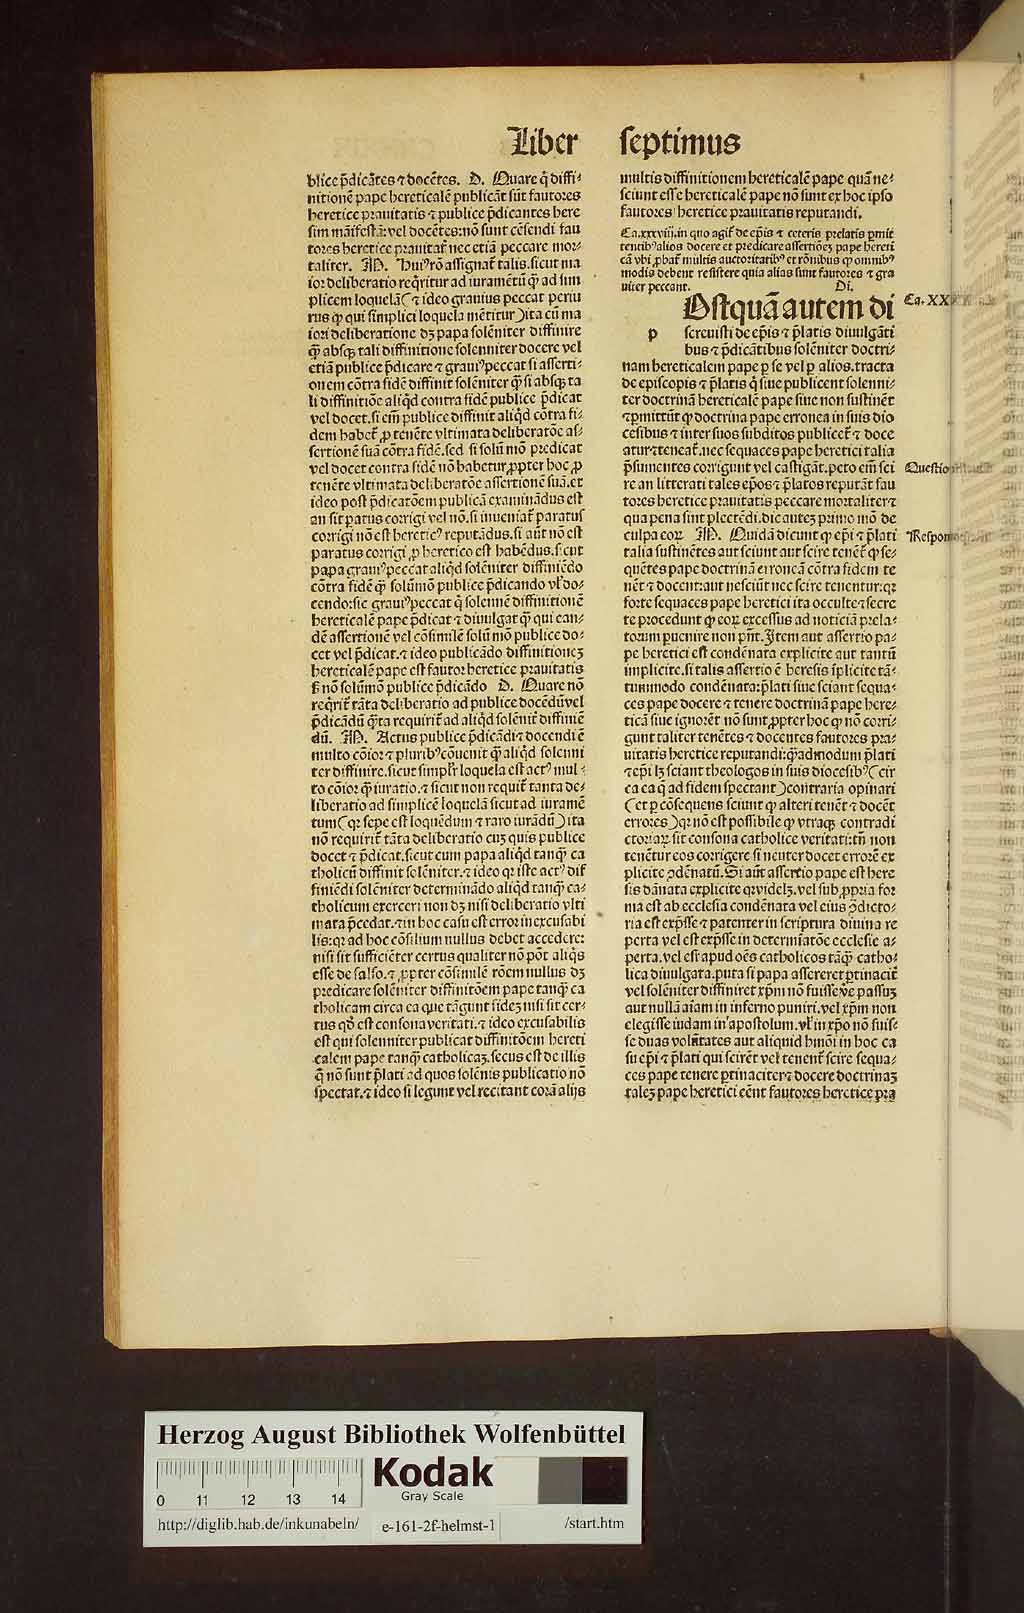 Liber septimus
blice p̄dicātes ⁊ docētes. D. Quare q̄ diffi⸗
nitionē pape hereticalē publicāt sūt fautores
heretice prauitatis ⁊ publice p̄dicantes here
sim māifestā: vel docētes: nō sunt cēsendi fau
tores heretice prauitat̄ nec etiā peccare mor⸗
taliter. M. Huiꝰ rō assignat̄ talis. sicut ma
ior deliberatio req̄ritur ad iuramētū q̄ ad sim
plicem loquelā (⁊ ideo grauius peccat periu
rus q̄ qui simplici loquela mētitur) ita cū ma
iori deliberatione dꝫ papa solēniter diffinire
q̄ absqꝫ tali diffinitione solenniter docere vel
etiā publice p̄dicare ⁊ grauiꝰ peccat si asserti⸗
onem cōtra fidē diffinit solēniter q̄ si absqꝫ ta
li diffinitiōe aliq̄d contra fidē publice p̄dicat
vel docet. si em̄ publice diffinit aliq̄d cōtra fi⸗
dem habet̄ ꝓ tenēte vltimata deliberatōe as⸗
sertionē suā cōtra fidē. sed si solū mō predicat
vel docet contra fidē nō habetur ꝓpter hoc ꝓ
tenēte vltimata deliberatōe assertionē suā. et
ideo post p̄dicatōem publicā examinādus est
an sit patus corrigi vel nō. si inueniat̄ paratus
corrigi nō est hereticꝰ reputādus. si aūt nō est
paratus corrigi ꝓ heretico est habēdus. sicut
papa grauiꝰ peccat aliq̄d solēniter diffiniēdo
cōtra fidē q̄ solūmō publice p̄dicando vl̄ do⸗
cendo: sic grauiꝰ peccat q̄ solennē diffinitionē
hereticalē pape p̄dicat ⁊ diuulgat q̄ qui ean⸗
dē assertionē vel cōsimilē solū mō publice do⸗
cet vel p̄dicat. ⁊ ideo publicādo diffinitioneꝫ
hereticalē pape est fautor heretice prauitatis
ſꝫ nō solūmō publice p̄dicādo D. Quare nō
req̄rit̄ tāta deliberatio ad publice docēdū vel
p̄dicādū q̄ta requirit̄ ad aliq̄d solēnit̄ diffiniē
dū. M. Actus publice p̄dicādi ⁊ docendi ē
multo cōior ⁊ pluribꝰ cōuenit q̄ aliq̄d solenni
ter diffinire. sicut simpl'r loquela est actꝰ mul⸗
to cōior q̄ iuratio. ⁊ sicut non requit̄ tanta de⸗
liberatio ad simplicē loquelā sicut ad iuramē
tum (qꝛ sepe est loquēdum ⁊ raro iurādū) ita
nō requirit̄ tāta deliberatio cuꝫ quis publice
docet ⁊ p̄dicat. sicut cum papa aliq̄d tanq̄ ca
tholicū diffinit solēniter. ⁊ ideo qꝛ iste actꝰ dif
finiēdi solēniter determinādo aliq̄d tanq̄ ca⸗
tholicum exerceri non dꝫ nisi deliberatio vlti
mata p̄cedat. ⁊ in hoc casu est error inexcusabi
lis: qꝛ ad hoc cōsilium nullus debet accedere:
nisi sit sufficiēter certus qualiter nō pōt aliq̄s
esse de falso. ⁊ ꝓpter cōsimilē rōem nullus dꝫ
predicare solēniter diffinitōem pape tanq̄ ca
tholicam circa ea que tāgunt fideꝫ nisi sit cer⸗
tus qd̄ est consona veritati. ⁊ ideo excusabilis
est qui solenniter publicat diffinitōem hereti
calem pape tanq̄ catholicaꝫ. secus est de illis
q̄ nō sunt p̄lati ad quos solēnis publicatio nō
spectat. ⁊ ideo si legunt vel recitant corā alijs
multis diffinitionem hereticalē pape quā ne⸗
sciunt esse hereticalē pape nō sunt ex hoc ipso
fautores heretice prauitatis reputandi.
Ca. xxxviij. in quo agit̄ de ep̄is ⁊ ceteris prelatis p̄mit
tentibꝰ alios docere et predicare assertiōeꝫ pape hereti
cā vbi ꝓbat̄ multis auctoritatibꝰ et rōnibus ꝙ omnibꝰ
modis debent resistere quia alias sunt fautores ⁊ gra
uiter peccant. Di.
Ostquā autem di Ca. XX
p seruisti de ep̄is ⁊ p̄latis diuulgāti
bus ⁊ p̄dicātibus solēniter doctri⸗
nam hereticalem pape p se vel p alios. tracta
de episcopis ⁊ p̄latis q̄ siue publicent solenni⸗
ter doctrinā hereticalē pape siue non sustinēt
⁊ p̄mittūt ꝙ doctrina pape erronea in suis dio
cesibus ⁊ inter suos subditos publicet̄ ⁊ doce
atur ⁊ teneat̄. nec sequaces pape heretici talia
p̄sumentes corrigunt vel castigāt. peto em̄ sci Questio
re an litterati tales ep̄os ⁊ p̄latos reputāt fau
tores heretice prauitatis peccare mortaliter ⁊
qua pena sint plectēdi. dic auteꝫ primo mō de
culpa eoꝝ. M. Quidā dicunt ꝙ ep̄i ⁊ p̄lati Respon
talia sustinētes aut sciunt aut scire tenēt̄ ꝙ se⸗
quētes pape doctrinā erroneā cōtra fidem te
nēt ⁊ docent: aut nesciūt nec scire tenentur: qꝛ
forte sequaces pape heretici ita occulte ⁊ secre
te procedunt ꝙ eoꝝ excessus ad noticiā prela⸗
torum puenire non p̄nt. Item aut assertio pa⸗
pe heretici est condēnata explicite aut tantū
implicite. si talis assertio ē heresis īplicite tā⸗
tummodo condēnata: p̄lati siue sciant sequa⸗
ces pape docere ⁊ tenere doctrinā pape here⸗
ticā siue ignorēt nō sunt ꝓpter hoc ꝙ nō corri⸗
gunt taliter tenētes ⁊ docentes fautores pra⸗
uitatis heretice reputandi: q̄admodum p̄lati
⁊ ep̄i lꝫ sciant theologos in suis diocesibꝰ (cir
ca ea q̄ ad fidem spectant) contraria opinari
(et p cōsequens sciunt ꝙ alteri tenēt ⁊ docēt
errores) qꝛ nō est possibile ꝙ vtraqꝫ contradi
ctoriaꝝ sit consona catholice veritati: tn̄ non
tenētur eos corrigere si neuter docet errorē ex
plicite ꝯdēnatū. Si aūt assertio pape est here
sis dānata explicite qꝛ videlꝫ. vel sub ꝓpria for
ma est ab ecclesia condēnata vel eius ꝯdicto⸗
ria est exp̄sse ⁊ patenter in scriptura diuina re
perta vel est exp̄sse in determīatōe ecclesie a⸗
perta. vel est apud oēs catholicos tāq̄ catho⸗
lica diuulgata. puta si papa assereret ptinacit̄
vel solēniter diffiniret xp̄m nō fuisse ve passuꝫ
aut nullā aīam in inferno puniri. vel xp̄m non
elegisse iudam in apostolum. vl̄ in xp̄o nō fuis⸗
se duas volūtates aut aliquid hmōi in hoc ca
su ep̄i ⁊ p̄lati qui scirēt vel tenent̄ scire sequa⸗
ces pape tenere ptinaciter ⁊ docere doctrinaꝫ
taleꝫ pape heretici eēnt fautores heretice pra
Herzog August Bibliothek Wolfenbüttel
0 11 12 13 14
Kodak
Gray Scale
http://diglib.hab.de/inkunabeln/ e-161-2f-helmst-1 /start.htm